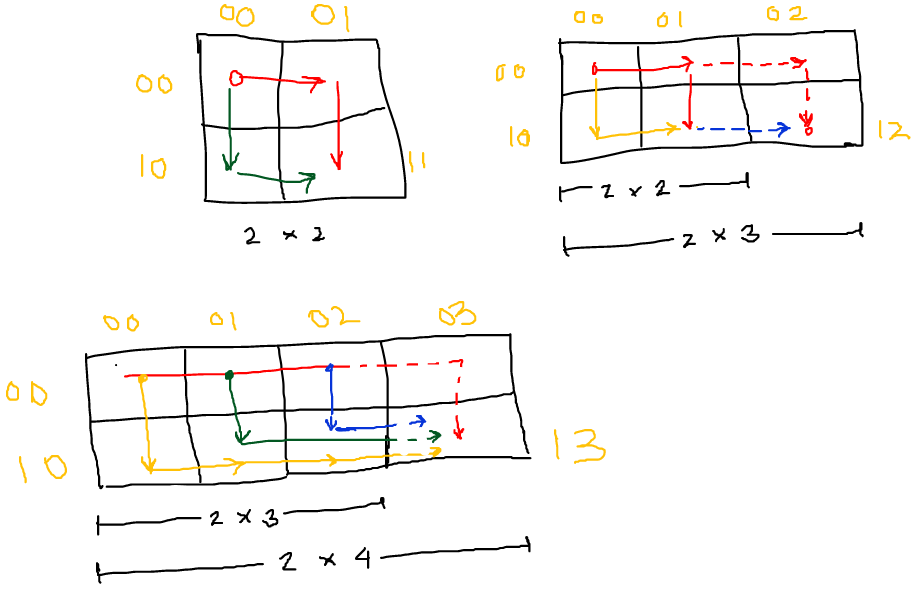 00 01
00
10 11
2 × 2
00 01 02
00
10 12
2 × 2
2 × 3
00 01 02 03
00
10 13
2 × 3
2 × 4